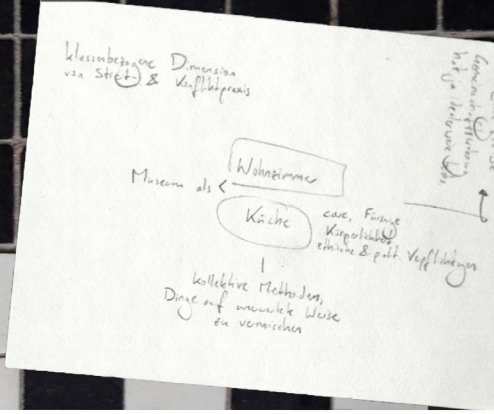 klassenbezogene Dimension
von Streit & Konfliktpraxis
Museum als <
Wohnzimmer
Küche
care, Fürsorge
Körperlichkeit
ethische & polit. Verpflichtungen
kollektive Methoden,
Dinge auf unerwartete Weise
zu vermischen